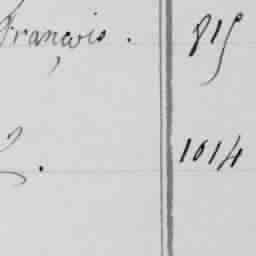 François. 815
1014